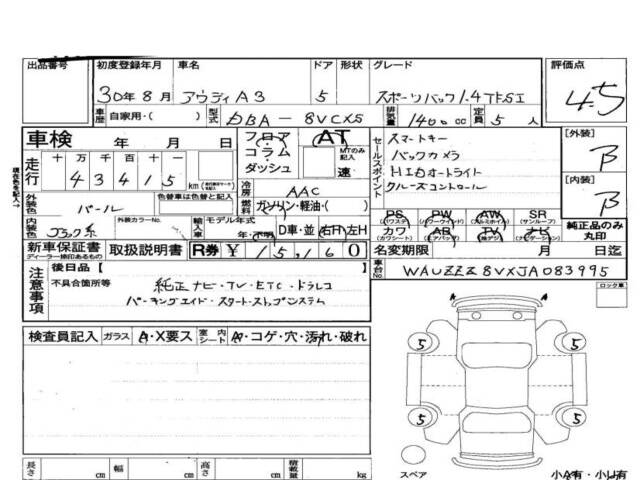 出品番号 初度登録年月 車名 ドア 形状 グレード 評価点
30年8月 アウディA3 5 スポーツバック1.4TFSI 4.5
車歴 自家用・( ) 型式 DBA-8VCXS 排気量 1400cc 定員 5人
車検 年 月 日 フロア・コラム・ダッシュ AT MTのみ記入 速
走行 十万 万 千 百 十 一 43415 km
セールスポイント スマートキー
バックカメラ
HIDオートライト
クルーズコントロール
[外装] B
[内装] B
冷房 AAC
外装色 パール 色替車は色替と記入 燃料 ガソリン・軽油・( )
内装色 ブラック系 外装カラーNo. 輸入車 モデル年式 年・不明 D車・並 右H 左H
PS (パワステ) PW (パワーウインド) AW (アルミホイル) SR (サンルーフ)
カワ (カワシート) (エアバック) TV ナビ 純正品のみ丸印
新車保証書 ディーラー捺印あるもの 取扱説明書 R券 ¥15,160 名変期限 月 日迄
注意事項 後日品( )
不具合箇所等 純正ナビ・TV・ETC・ドラレコ
パーキングエイド・スタートストップシステム
車台No. WAUZZZ8VXJA083995
ロック車
検査員記入 ガラス A・X要ス 室内シート A・コゲ・穴・汚れ・破れ
5 5
5 5
スペア
小A有・小U有
長さ cm 幅 cm 高さ cm 積載量 kg